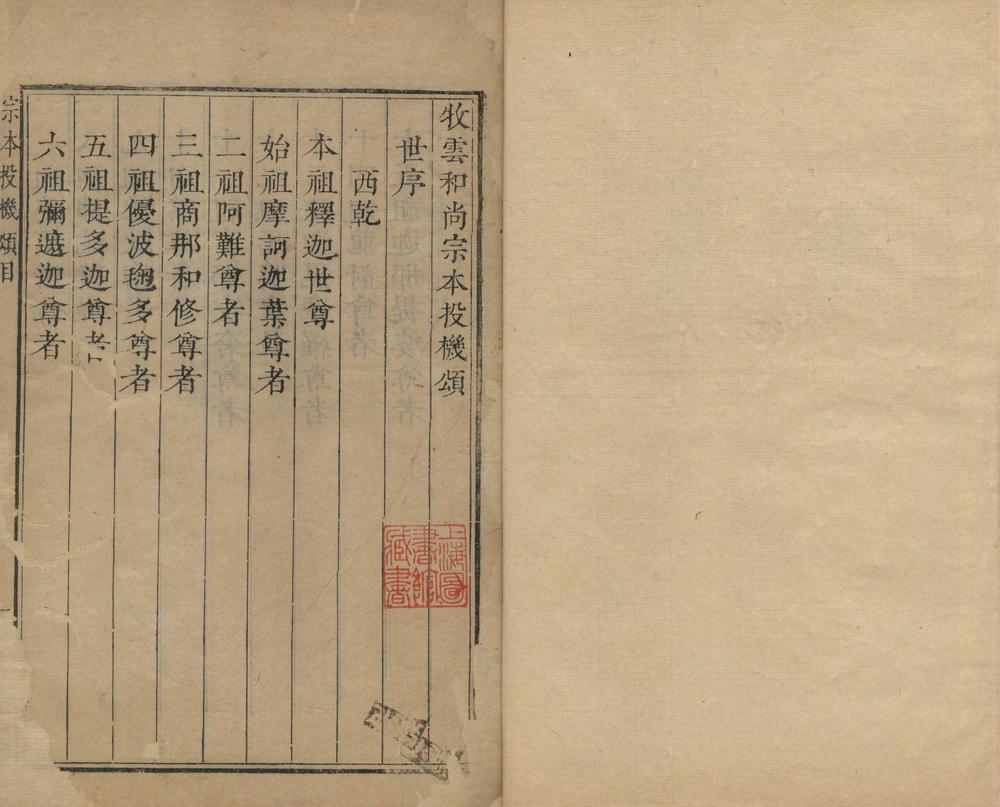 牧雲和尚宗本投機頌
世序
西乾
本祖釋迦世尊
始祖摩訶迦葉尊者
二祖阿難尊者
三祖商那和修尊者
四祖優波毱多尊者
五祖提多迦尊者
六祖彌遮迦尊者
宗本投機頌目
上海圖
書館
藏書